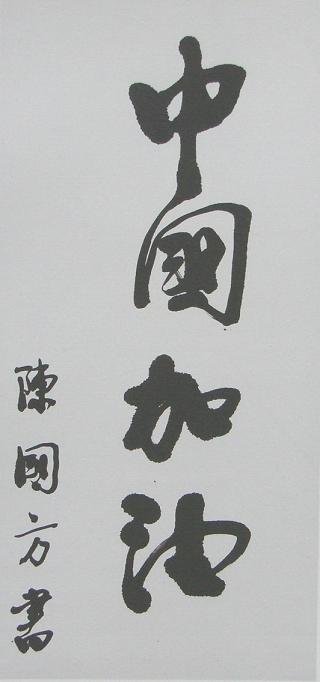 中國加油
陳國方書